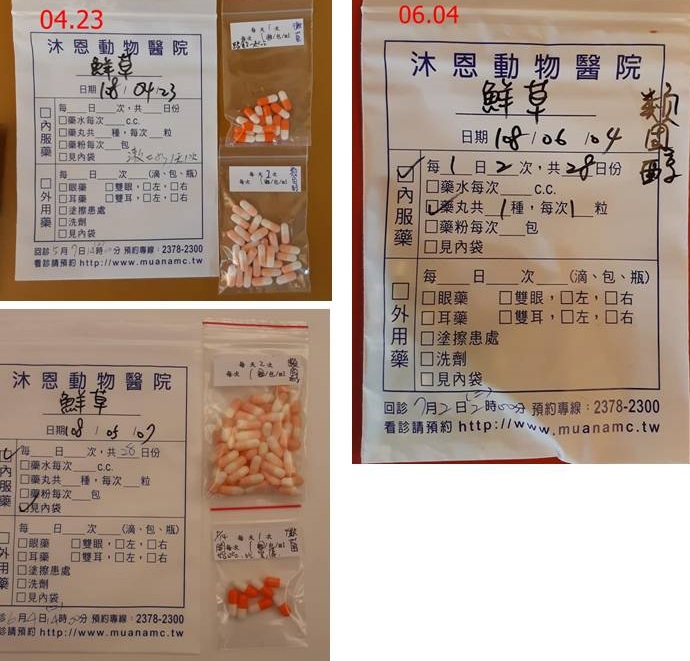 04.23
沐恩動物醫院
鮮草
日期 108/04/23
每___日___次，共___日份
內服藥
□藥水每次___c.c.
□藥丸共___種，每次___粒
□藥粉每次___包
□見內袋
每___日___次___(滴、包、瓶)
外用藥
□眼藥 □雙眼，□左，□右
□耳藥 □雙耳，□左，□右
□塗擦患處
□洗劑
□見內袋
回診5月7日 時 分 預約專線：2378-2300
看診請預約 http://www.muanamc.tw
每天1次
每次1顆/包/
每天2次
每次1顆/包/
06.04
沐恩動物醫院
鮮草
類固醇
日期 108/06/04
每1日2次，共28日份
內服藥
□藥水每次___c.c.
藥丸共1種，每次1粒
□藥粉每次___包
□見內袋
每___日___次___(滴、包、瓶)
外用藥
□眼藥 □雙眼，□左，□右
□耳藥 □雙耳，□左，□右
□塗擦患處
□洗劑
□見內袋
回診7月2日2時00分 預約專線：2378-2300
看診請預約 http://www.muanamc.tw
沐恩動物醫院
鮮草
日期108/05/07
每___日___次，共28日份
內服藥
□藥水每次___c.c.
□藥丸共___種，每次___粒
□藥粉每次___包
見內袋
每___日___次___(滴、包、瓶)
外用藥
□眼藥 □雙眼，□左，□右
□耳藥 □雙耳，□左，□右
□塗擦患處
□洗劑
□見內袋
月4日 時 分 預約專線：2378-2300
看診請預約 http://www.muanamc.tw
每天2次
每次1顆/包/
每天1次
每次1顆/包/